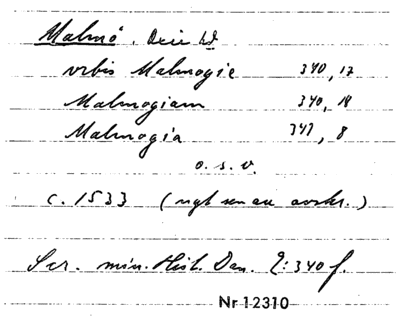 Malmö.
urbis Malmogie 340, 17
Malmogiam 340, 18
Malmogia 341, 8
o. s. v.
c. 1533 (ngt senare avskr.)
Scr. min. Hist. Dan. 2:340 f.
Nr 12310